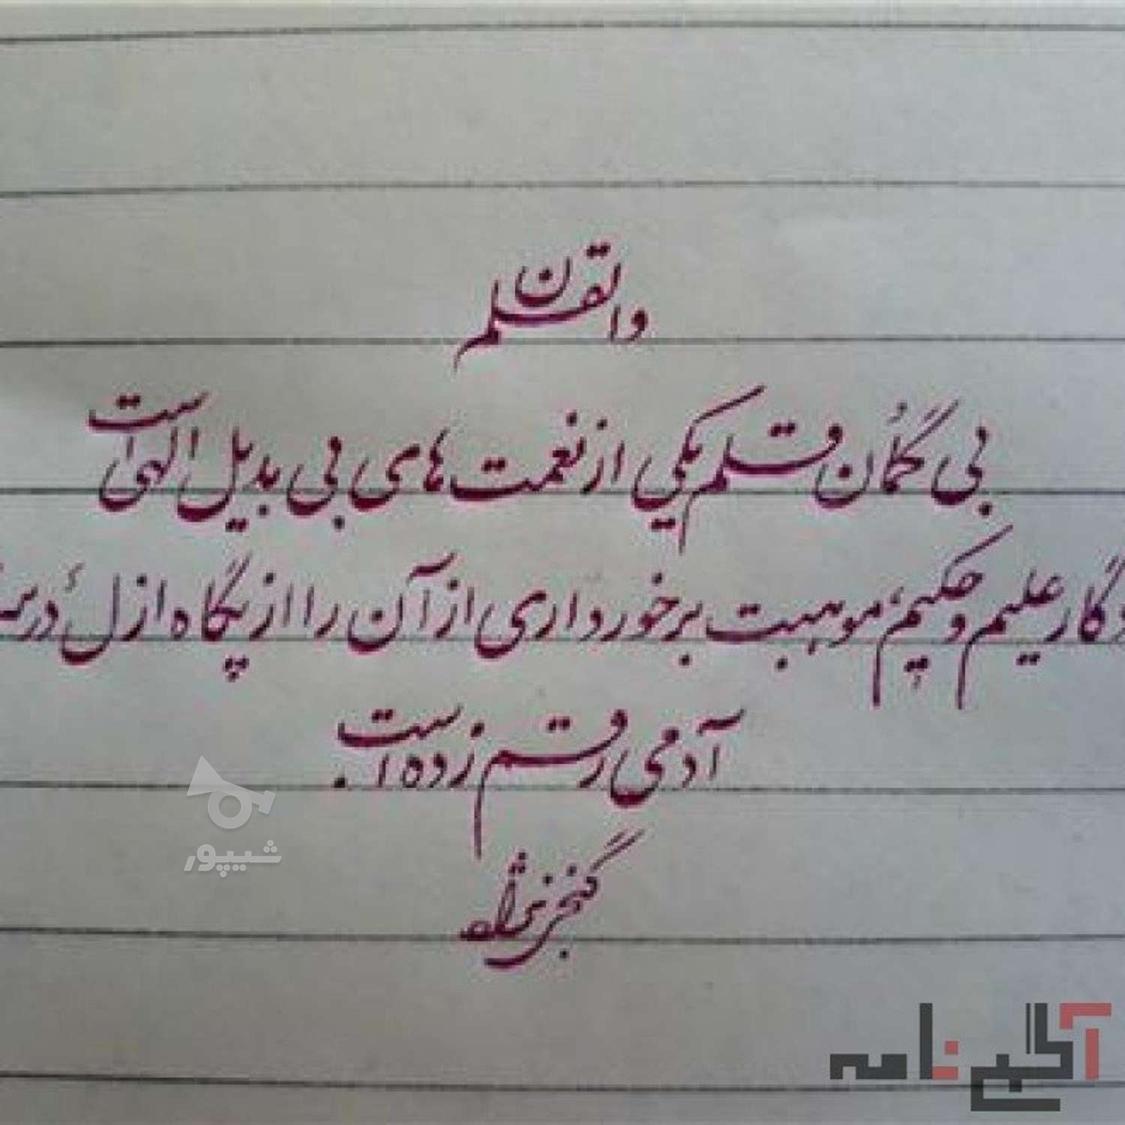 ن والقلم
بی گمُان قلم یکی از نعمت های بی بدیل الهی است
گار علیم و حکیم، موهبت برخورداری از آن را از پگاه ازل در
آدمی رقم زده است.
گنجی نژاد
شیپور
آگهی نامه